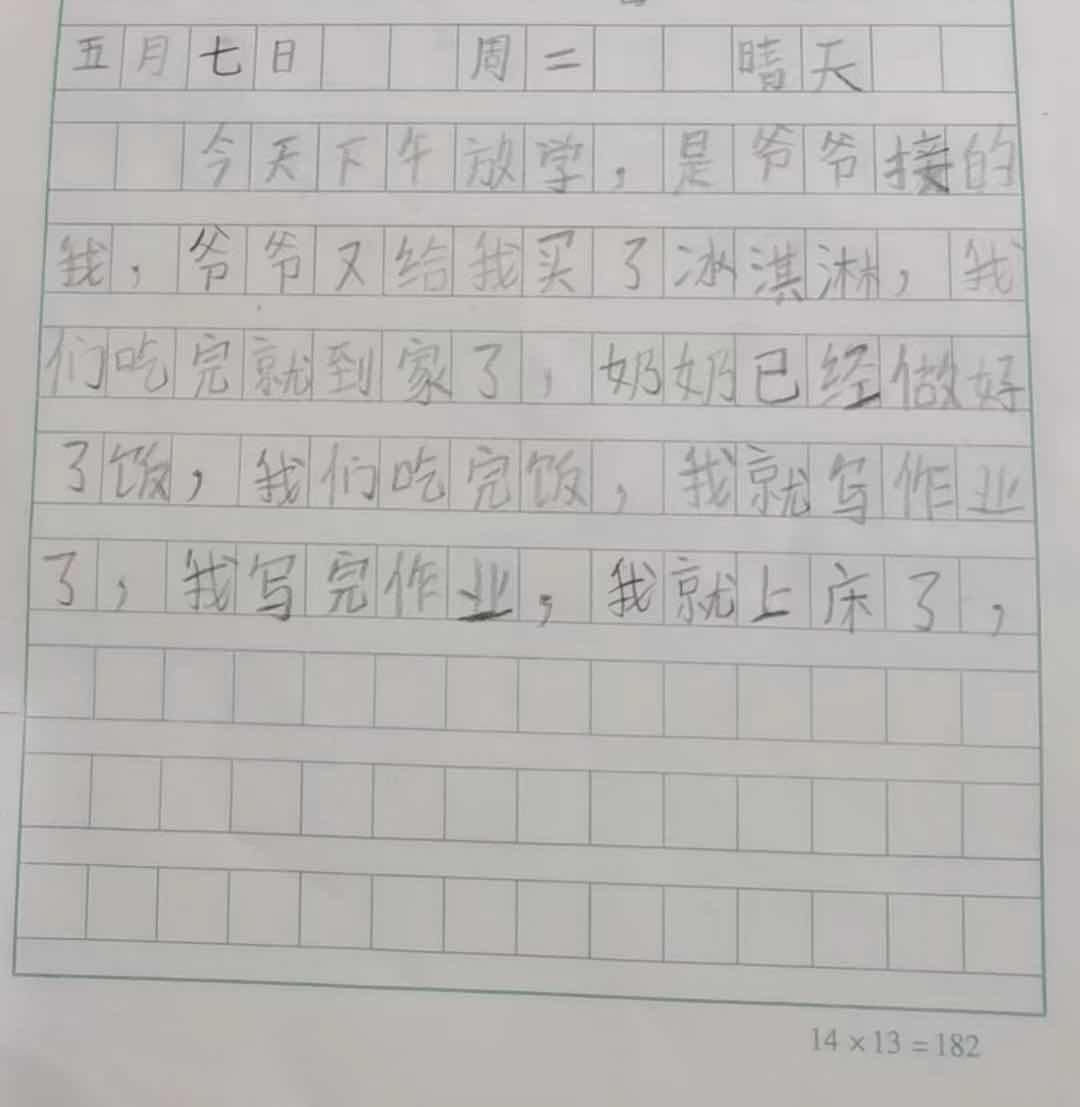 五月七日 周二 晴天
今天下午放学，是爷爷接的
我，爷爷又给我买了冰淇淋，我
们吃完就到家了，奶奶已经做好
了饭，我们吃完饭，我就写作业
了，我写完作业，我就上床了，
14×13=182